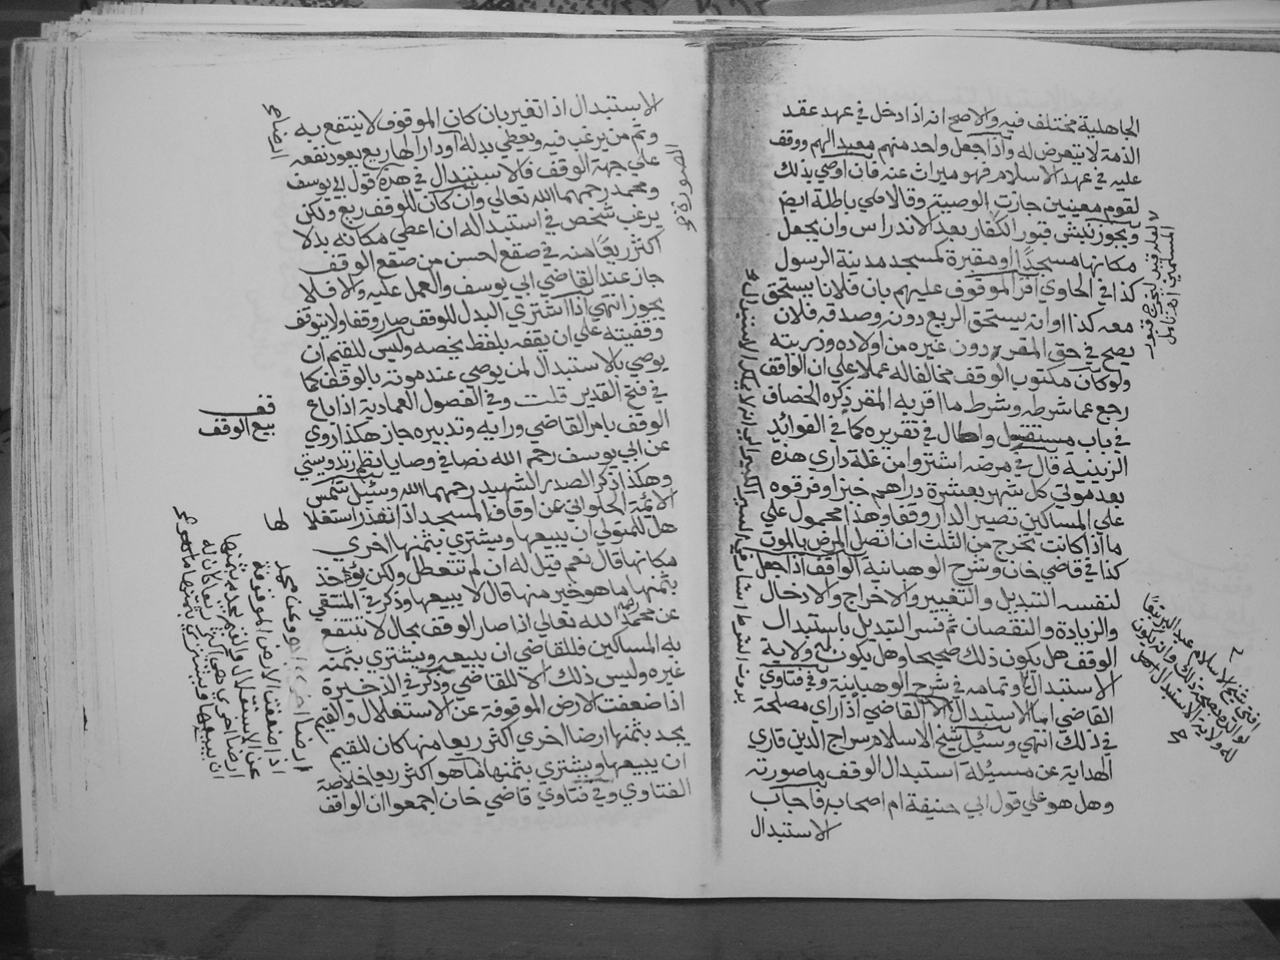 الجاهلية مختلف فيه والاصح انه اذا دخل في عهد عقد
الذمة لا يتعرض له واذا جعل واحد منهم معبدا لهم ووقف
عليه في عهد الاسلام فهو ميراث عنه فان اوصي بذلك
لقوم معينين جازت الوصية وقالا هي باطلة ايض
ويجوز نبش قبور الكفار بعد الاندراس وان يجعل
مكانها مسجدا او مقبرة كمسجد مدينة الرسول
كذا في الحاوي اقر الموقوف عليهم بان فلانا يستحق
معه كذا او انه يستحق الريع دونه وصدقه فلان
يصح في حق المقر دون غيره من اولاده وذريته
ولو كان مكتوب الوقف مخالفا له عملا علي ان الواقف
رجع عما شرطه وشرط ما اقر به المقر ذكره الخصاف
في باب مستقل واطال في تقريره كما في الفوائد
الزينية قال في مرضه اشتروا من غلة داري هذه
بعد موتي كل شهر بعشرة دراهم خبزا وفرقوه
علي المساكين تصير الدار وقفا وهذا محمول علي
ما اذا كانت تخرج من الثلث ان اتصل المرض بالموت
كذا في قاضي خان وشرح الوهبانية الواقف اذا جعل
لنفسه التبديل والتغيير والاخراج والادخال
والزيادة والنقصان ثم فسر التبديل باستبدال
الوقف هل يكون ذلك صحيحا وهل يكون له ولاية
الاستبدال وتمامه في شرح الوهبانية وفي فتاوي
القاضي اما الاستبدال الا القاضي اذا راي مصلحة
في ذلك انتهي وسئل شيخ الاسلام سراج الدين قاري
الهداية عن مسئلة استبدال الوقف ما صورته
وهل هو علي قول ابي حنيفة ام اصحابه فاجاب
الاستبدال
لعله قبيل لتخرج قبور
المسلمين اهـ تامل
افتي شيخ الاسلام عبد البر تبعا
لوالده بصحة ذلك وانه يكون
له ولاية الاستبدال اهـ
الاستبدال اذا تغير بان كان الموقوف لا ينتفع به
وثم من يرغب فيه ويعطي بدله او دارا لها ريع يعود نفعه
علي جهة الوقف فالاستبدال في هذه قول ابي يوسف
ومحمد رحمهما الله تعالي وان كان للوقف ريع ولكن
يرغب شخص في استبداله ان اعطي مكانه بدلا
اكثر ريعا منه في صقع احسن من صقع الوقف
جاز عند القاضي ابي يوسف والعمل عليه والا فلا
يجوز انتهي اذا اشتري البدل للوقف صار وقفا ولا يتوقف
وقفيته علي ان يقفه بلفظ يخصه وليس للقيم ان
يوصي بالاستبدال لمن يوصي عند موته بالوقف كما
في فتح القدير قلت وفي الفصول العمادية اذا باع
الوقف بامر القاضي ورايه وتدبيره جاز هكذا روي
عن ابي يوسف رحمه الله نصا في وصايا
وهكذا ذكر الصدر الشهيد رحمهما الله وسئل شمس
الائمة الحلواني عن اوقاف المسجد اذا تعذر استغلا
لها
هل للمتولي ان يبيعها ويشتري بثمنها اخري
مكانها قال نعم قيل له ان لم تتعطل ولكن يؤخذ
بثمنها ما هو خير منها قال لا يبيعها وذكر في المنتقي
عن محمد رضي الله تعالي اذا صار الوقف بحال لا ينتفع
به المساكين فللقاضي ان يبيعه ويشتري بثمنه
غيره وليس ذلك الا للقاضي وذكر في الذخيرة
اذا ضعفت الارض الموقوفة عن الاستغلال والقيم
يجد بثمنها ارضا اخري اكثر ريعا منها كان للقيم
ان يبيعها ويشتري بثمنها ما هو اكثر ريعا خلاصة
الفتاوي وفي فتاوي قاضي خان اجمعوا ان الواقف
قف
بيع الوقف
اذا ضعفت الارض الموقوفة
عن الاستغلال والقيم يجد بثمنها
ارضا اخري هي اكثر ريعا كان له
ان يبيعها ويشتري بثمنها